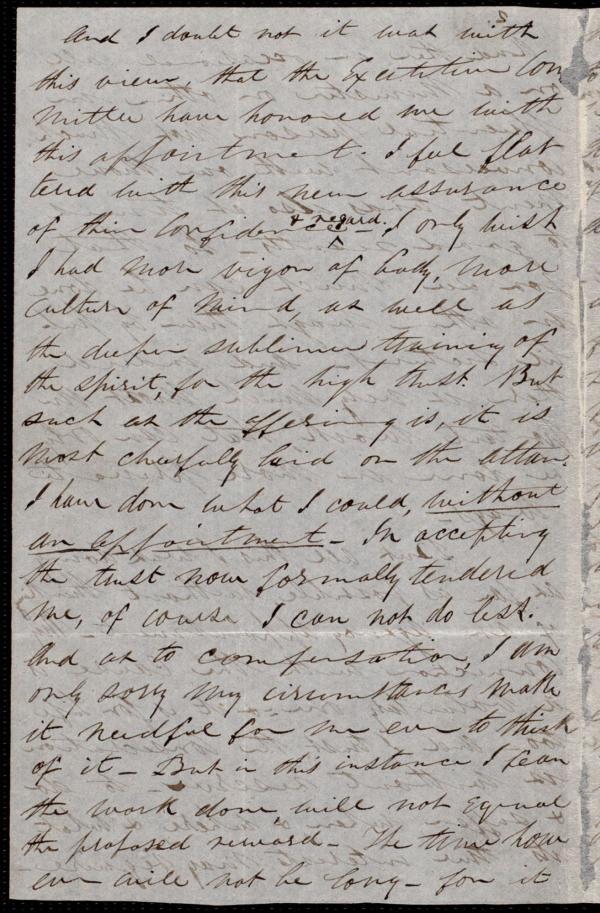 And I doubt not it was with
this view, that the Executive Com
mittee have honored me with
this appointment. I feel flat
tered with this new assurance
of their Confidence & regard. I only wish
I had more vigor of body, more
culture of mind, as well as
the deeper sublimer training of
the spirit, for the high trust. But
such as the offering is, it is
most cheerfully laid on the altar.
I have done what I could, without
an appointment - In accepting
the trust now formally tendered
me, of course I can not do less.
And as to compensation, I am
only sorry my circumstances make
it needful for me even to think
of it - But in this instance I fear
the work done, will not equal
the proposed reward - The time how
ever will not be long - for it